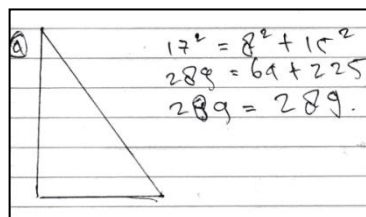 (a)
17² = 8² + 15²
289 = 64 + 225
289 = 289.